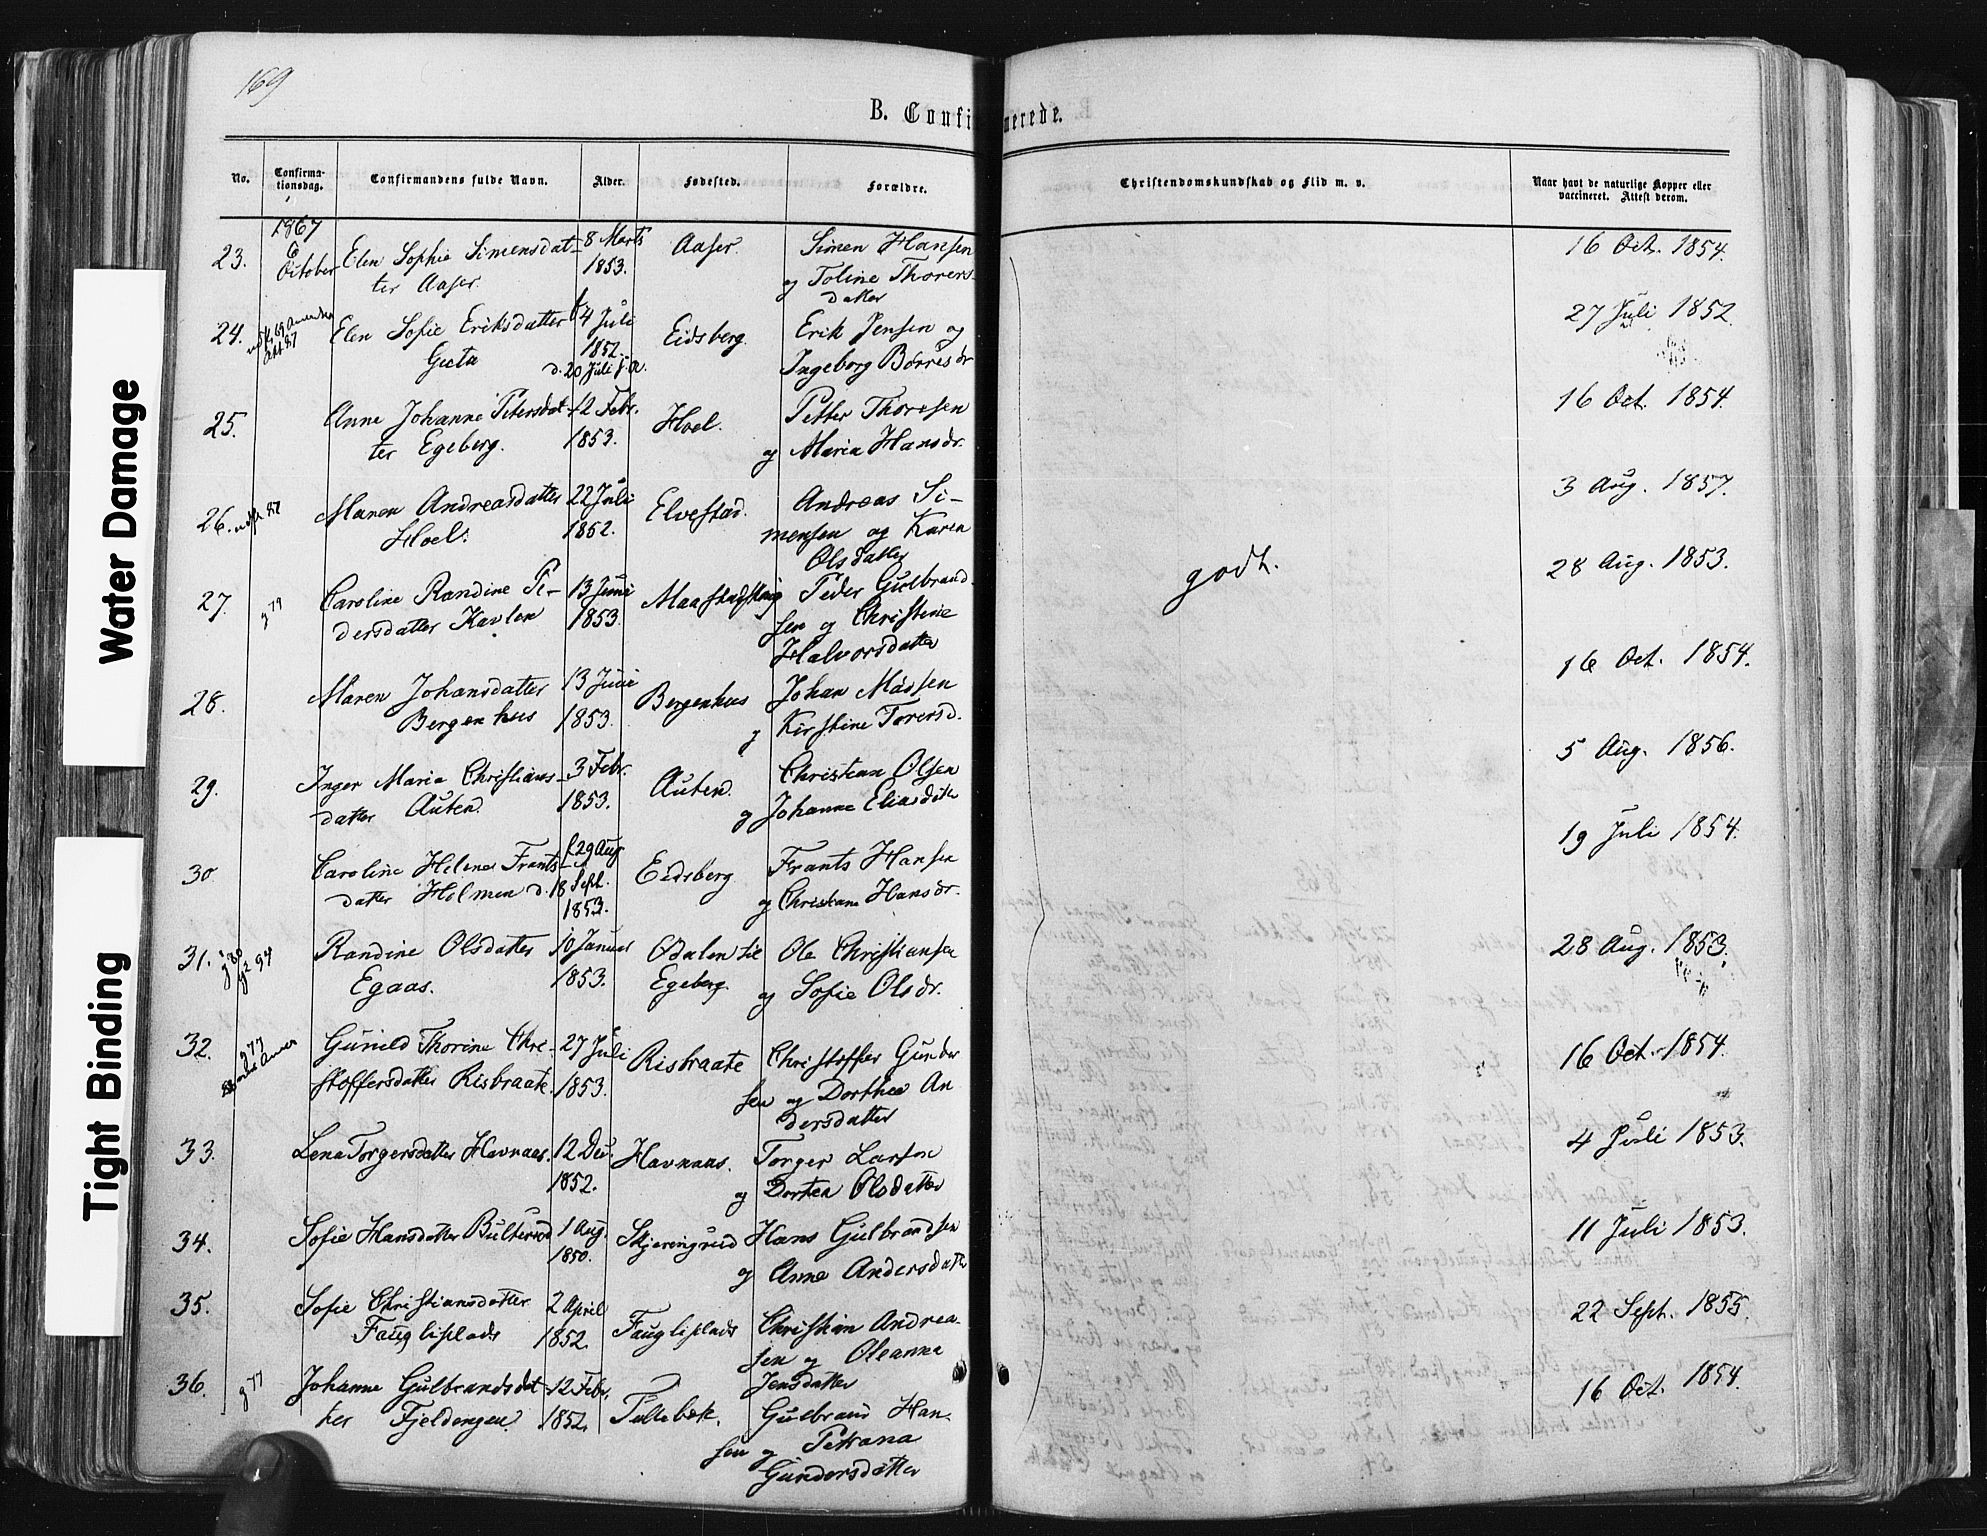 169
B. Confirmerede.
No.
Confirma-
tionsdag.
Confirmandens fulde Navn.
Alder.
Fødested.
Forældre.
Christendomskundskab og Flid m. v.
Naar havt de naturlige Kopper eller
vaccineret. Attest derom.
1867
6
October
23.
Elen Sophie Simensdat-
ter Aaser.
8 Marts
1853.
Aaser.
Simen Hansen
og Toline Thorers-
datter
16 Oct. 1854.
24.
Elen Sofie Eriksdatter
f. 4 Juli
1852.
d. 20 Juli s. A.
Eidsberg.
Erik Jensen og
Ingeborg Børresdr
27 Juli 1852.
25.
Anne Johanne Petersdat-
ter Egeberg.
12 Febr.
1853.
Hoel.
Petter Thoresen
og Maria Hansdr.
16 Oct. 1854.
26.
Maren Andreasdatter
Hoel.
22 Juli
1852.
Elvestad.
Andreas Si-
mensen og Karen
Olsdatter
3 Aug. 1857.
27.
g 79
Caroline Randine Pe-
dersdatter Kavlen
13 Juni
1853.
Peder Gulbrand-
sen og Christine
Halvorsdatter
godt.
28 Aug. 1853.
28.
Maren Johansdatter
Bergenhus
13 Juni
1853.
Bergenhus
Johan Madsen
og Kirstine Torersd.
16 Oct. 1854.
29.
Inger Maria Christians-
datter Auten.
3 Febr.
1853.
Auten.
Christian Olsen
og Johanne Eliasdatter
5 Aug. 1856.
30
Caroline Helene Frants-
datter Holmen
f. 29 Aug
d. 18 Sept.
1853.
Eidsberg.
Frants Hansen
og Christiane Hansdr.
19 Juli 1854.
31.
Randine Olsdatter
Egaas.
10 Januar
1853.
Ødalen til
Egeberg.
Ole Christiansen
og Sofie Olsdr.
28 Aug. 1853.
32.
g 77
Gunild Thorine Chri-
stoffersdatter Risbraate.
27 Juli
1853.
Risbraate
Christoffer Gunder
sen og Dorthea An
dersdatter
16 Oct. 1854.
33.
Lena Torgersdatter Havnaas.
12 Dec.
1852.
Havnaas.
Torger Larsen
og Dorten Olsdatter
4 Juli 1853.
34.
Sofie Hansdatter Bulterud
1 Aug.
1850.
Skjerengrud
Hans Gulbrandsen
og Anne Andersdatter
11 Juli 1853.
35.
Sofie Christiansdatter
Faugliplads
2 April
1852.
Faugliplads
Christian Andrea-
sen og Oleanna
Jensdatter
22 Sept. 1855.
36.
g 77
Johanne Gulbrandsdat-
ter Fjeldengen.
12 Febr.
1852.
Tullebæk.
Gulbrand Han-
sen og Petrana
Gundersdatter
16 Oct. 1854.
Water Damage
Tight Binding